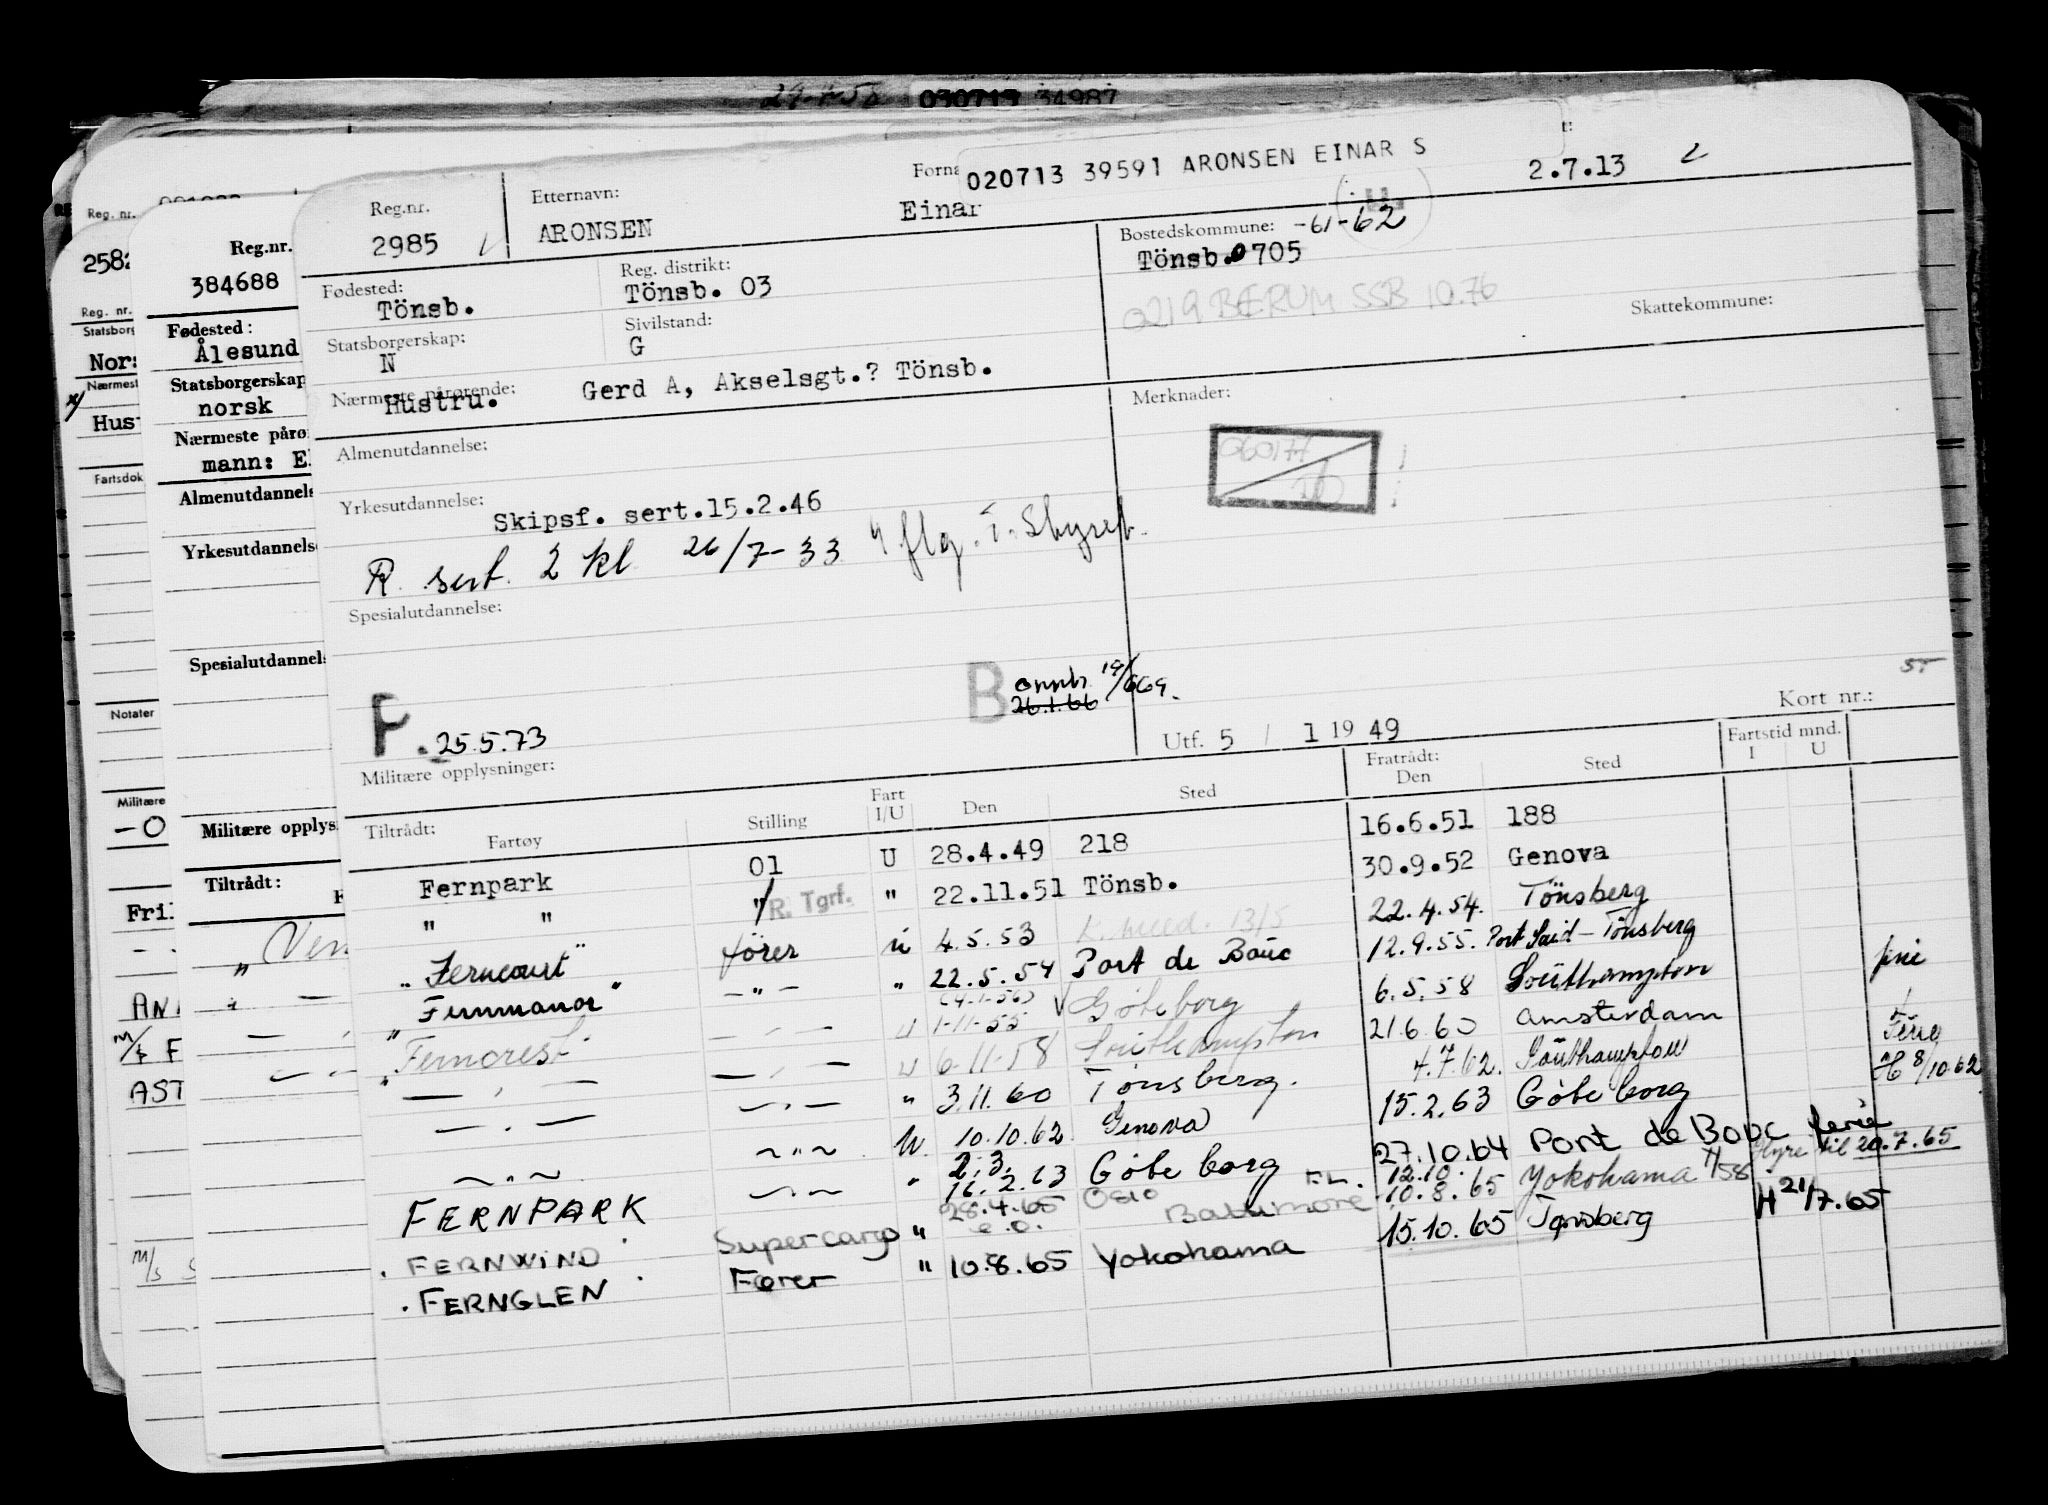 29-7-58 030713 34987
Reg. nr.
2582
Reg. nr.
Statsborg
Nærmest
Fartsdok
Notater
Militære
- O
AST
Reg.nr.
384688
Fødested:
Ålesund
Statsborgerskap
norsk
Nærmeste pårø
mann: E
Almenutdannels
Yrkesutdannelse
Spesialutdannels
Militære opplys
Tiltrådt:
020713 39591 ARONSEN EINAR S
Reg.nr. Etternavn: Forna
2985 ARONSEN Einar 2.7.13
Fødested: Reg. distrikt: Bostedskommune: -61-62
Tönsb. Tönsb. 03 Tönsb. 0705
0219 BÆRUM SSB 10.76
Statsborgerskap: Sivilstand: Skattekommune:
N G
Nærmeste pårørende: Merknader:
Hustru. Gerd A, Akselsgt.? Tönsb.
Almenutdannelse:
060177
Yrkesutdannelse:
Skipsf. sert.15.2.46
R. sert. 2 kl 26/7-33
Spesialutdannelse:
P. 25.5.73
B 26.1.66
Utf. 5 / 1 1949 Kort nr.:
Militære opplysninger:
Tiltrådt: Fratrådt: Fartstid mnd.
Fartøy Stilling Fart I/U Den Sted Den Sted I U
Fernpark 01 U 28.4.49 218 16.6.51 188
" " " R. Tgrf. " 22.11.51 Tönsb. 30.9.52 Genova
"Ferncourt" förer u 4.5.53 22.4.54. Tönsberg
"Fernmanor" - " - " 22.5.54 Port de Bouc 12.9.55. Port Said - Tönsberg
"Ferncrest" (4-1-56) 1-11-55 Göteborg 6.5.58 Southampton
6-11-58 Southampton 21.6.60 Amsterdam
" 3.11.60 Tönsberg. 4.7.62. Southampton
10.10.62 Genova 15.2.63 Göteborg H 8/10.62
2.3.
FERNPARK " 16.2.63 Göteborg 27.10.64 Port de Bouc ferie
Hyre til 20.7.65
FERNWIND Supercargo " 28.4.65 Oslo Baltimore 12.10. 10.8.65 Yokohama
H 21/7.65
FERNGLEN Fører " 10.8.65 Yokohama 15.10.65 Tønsberg